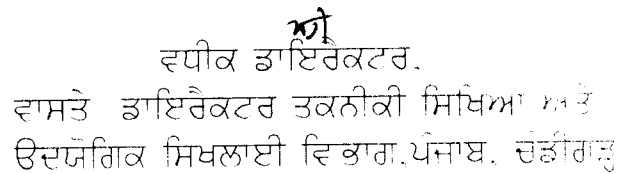 ਵਧੀਕ ਡਾਇਰੈਕਟਰ.
ਵਾਸਤੇ ਡਾਇਰੈਕਟਰ ਤਕਨੀਕੀ ਸਿਖਿਆ ਅਤੇ
ਉਦਯੋਗਿਕ ਸਿਖਲਾਈ ਵਿਭਾਗ.ਪੰਜਾਬ. ਚੰਡੀਗੜ੍ਹ